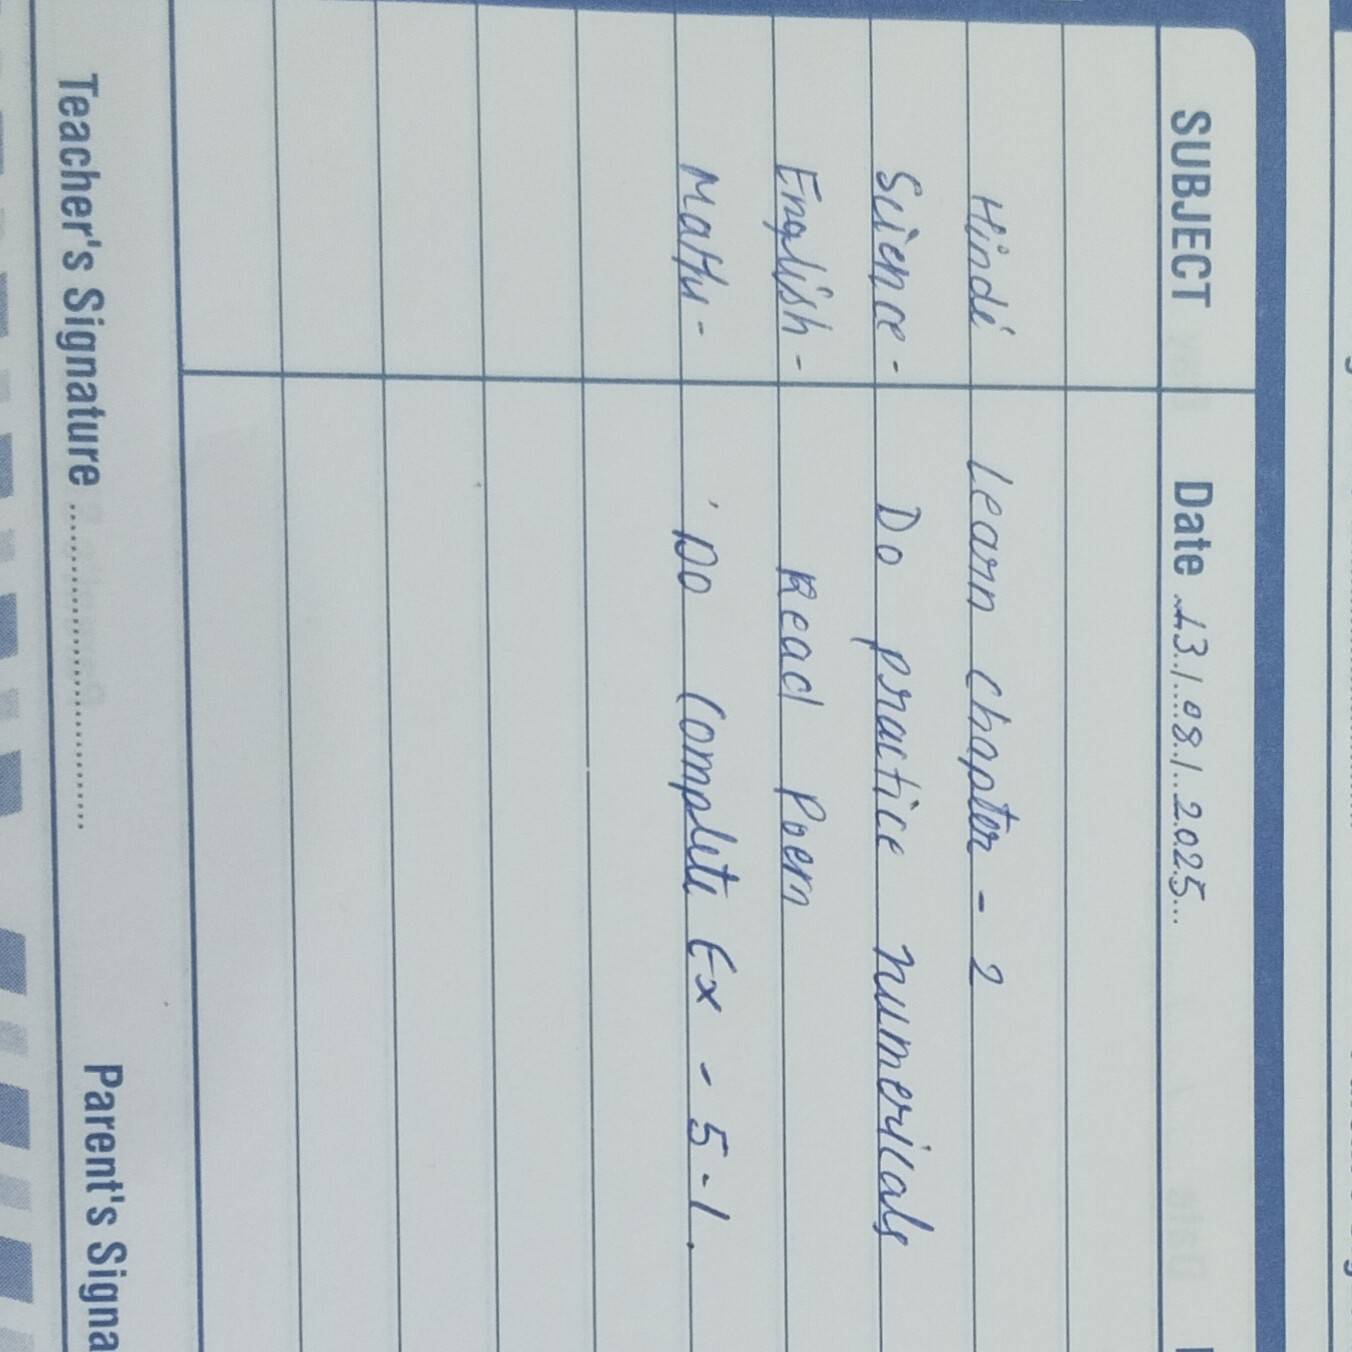 SUBJECT Date 13/08/2025
Hindi Learn chapter - 2
Science - Do practice numericals
English - Read Poem
Maths - Do Complete Ex - 5.1.
Teacher's Signature .............................. Parent's Signa